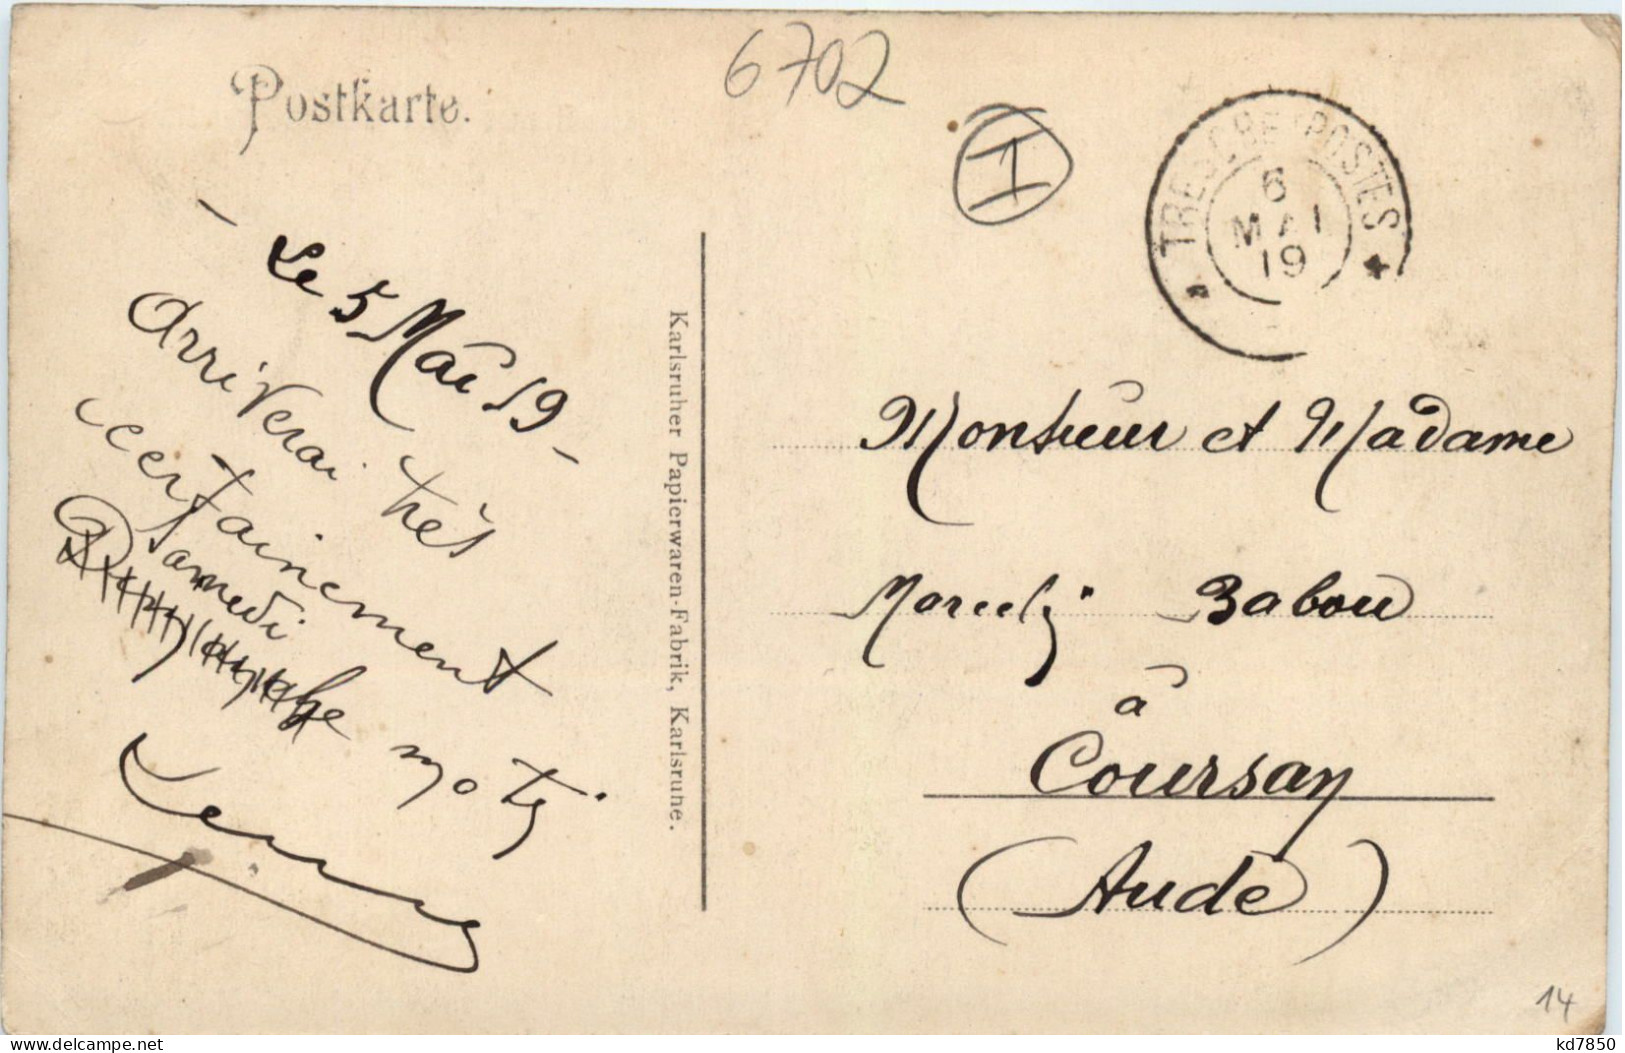 Postkarte.
6702
I
TRESOR ET POSTES
6
MAI
19
- Le 5 Mai 19 -
arriverai très
certainement
Samedi
le
Karlsruher Papierwaren-Fabrik, Karlsrune.
Monsieur et Madame
Babou
à
Coursan
(Aude)
14
kd7850